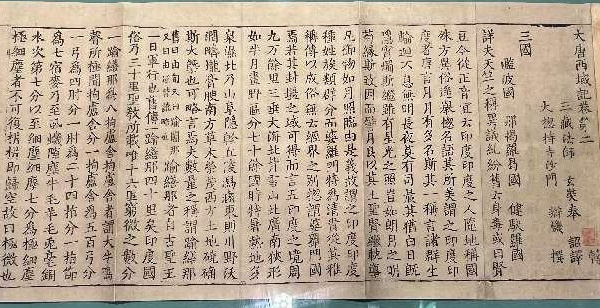 大唐西域記卷第二
三藏法師 玄奘奉 詔譯
大總持寺沙門 辯機 撰
三國
濫波國 那揭羅曷國 健馱羅國
詳夫天竺之稱異議糺紛舊云身毒或曰賢
豆今從正音宜云印度印度之人隨地稱國
殊方異俗遙舉揔名語其所美謂之印度印
度者唐言月月有多名斯其一稱言諸群生
輪迴不息無明長夜莫有司晨其猶白日既
隱宵燭斯繼雖有星光之照豈如朗月之明
苟緣斯致因而譬月良以其土聖賢繼軌導
凡御物如月照臨由是義故謂之印度印度
種姓族類群分而婆羅門特為清貴從其雅
稱傳以成俗無云經界之別揔謂婆羅門國
焉若其封疆之域可得而言五印度之境周
九万餘里三垂大海北背雪山北廣南狹形
如半月畫野區分七十餘國時特暑熱地多
泉濕北乃山阜隱軫丘陵舄鹵東則川野沃
潤疇壠膏腴南方草木榮茂西方土地磽确
斯大槩也可略言焉夫數量之稱謂踰繕那
舊曰由旬又曰踰闍那又曰由延皆訛略也 踰繕那者自古聖王
一日軍行也舊傳一踰繕那四十里矣印度國
俗乃三十里聖教所載唯十六里窮微之數分
一踰繕那為八拘盧舍拘盧舍者謂大牛鳴
聲所極聞拘盧舍分一拘盧舍為五百弓分
一弓為四肘分一肘為二十四指分一指節
為七宿麥乃至虱蟣隙塵牛毛羊毛兔毫銅
水次第七分以至細塵細塵七分為極細塵
極細塵者不可復析析即歸空故曰極微也